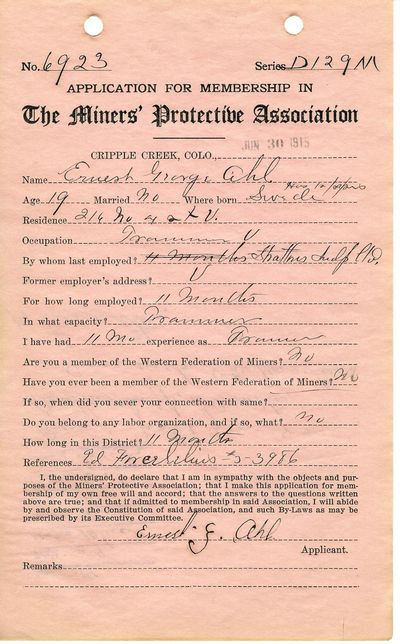 No. 6923 Series D129M
APPLICATION FOR MEMBERSHIP IN
The Miners' Protective Association
CRIPPLE CREEK, COLO., JUN 30 1915
Name Ernest George Ahl
Age 19 Married No Where born Swede
Residence 216 No 2 V.
Occupation Trammer V
By whom last employed? 11 Months Strattns Indp
Former employer's address? V
For how long employed? 11 Months
In what capacity? Trammer
I have had 11 Mo experience as Trammer
Are you a member of the Western Federation of Miners? No
Have you ever been a member of the Western Federation of Miners? No
If so, when did you sever your connection with same?
Do you belong to any labor organization, and if so, what? no
How long in this District? 11 Months
References Ed #5-3986
I, the undersigned, do declare that I am in sympathy with the objects and pur-
poses of the Miners' Protective Association; that I make this application for mem-
bership of my own free will and accord; that the answers to the questions written
above are true; and that if admitted to membership in said Association, I will abide
by and observe the Constitution of said Association, and such By-Laws as may be
prescribed by its Executive Committee.
Ernest G. Ahl
Applicant.
Remarks